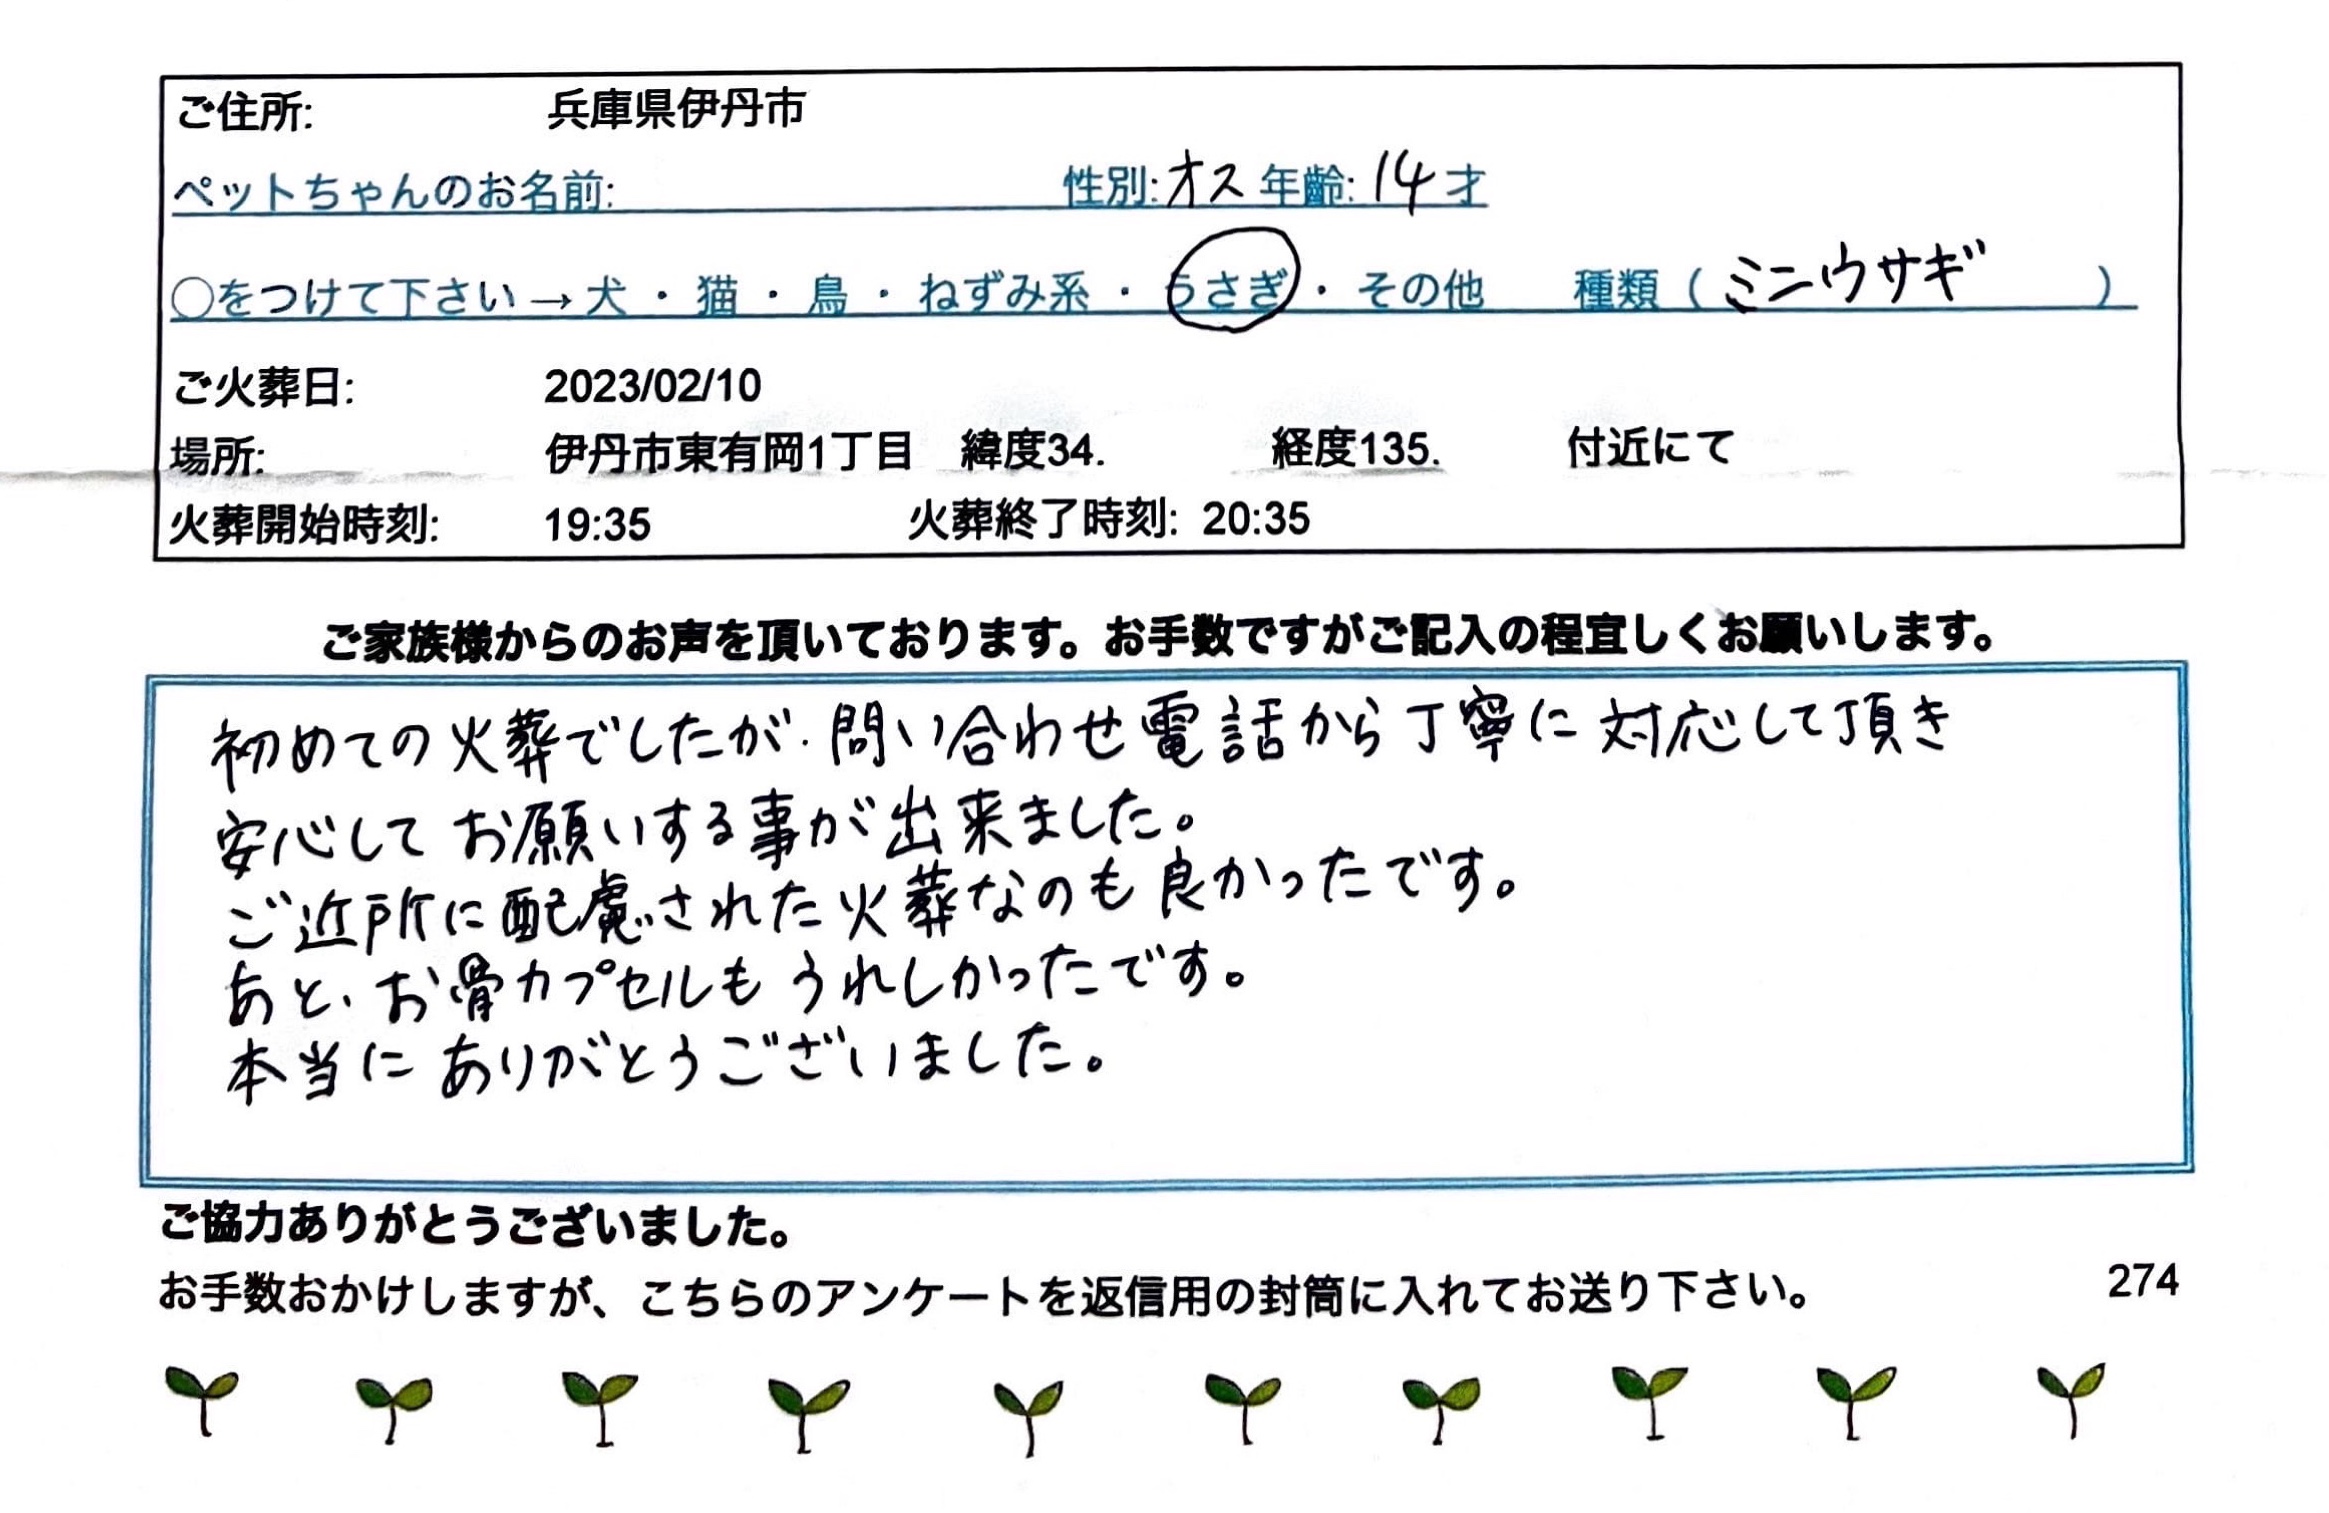 ご住所: 兵庫県伊丹市
ペットちゃんのお名前: 性別:オス 年齢:14才
○をつけて下さい→犬・猫・鳥・ねずみ系・うさぎ・その他 種類(ミニウサギ)
ご火葬日: 2023/02/10
場所: 伊丹市東有岡1丁目 緯度34. 経度135. 付近にて
火葬開始時刻: 19:35 火葬終了時刻: 20:35
ご家族様からのお声を頂いております。お手数ですがご記入の程宜しくお願いします。
初めての火葬でしたが、問い合わせ電話から丁寧に対応して頂き
安心してお願いする事が出来ました。
ご近所に配慮された火葬なのも良かったです。
あと、お骨カプセルもうれしかったです。
本当にありがとうございました。
ご協力ありがとうございました。
お手数おかけしますが、こちらのアンケートを返信用の封筒に入れてお送り下さい。 274